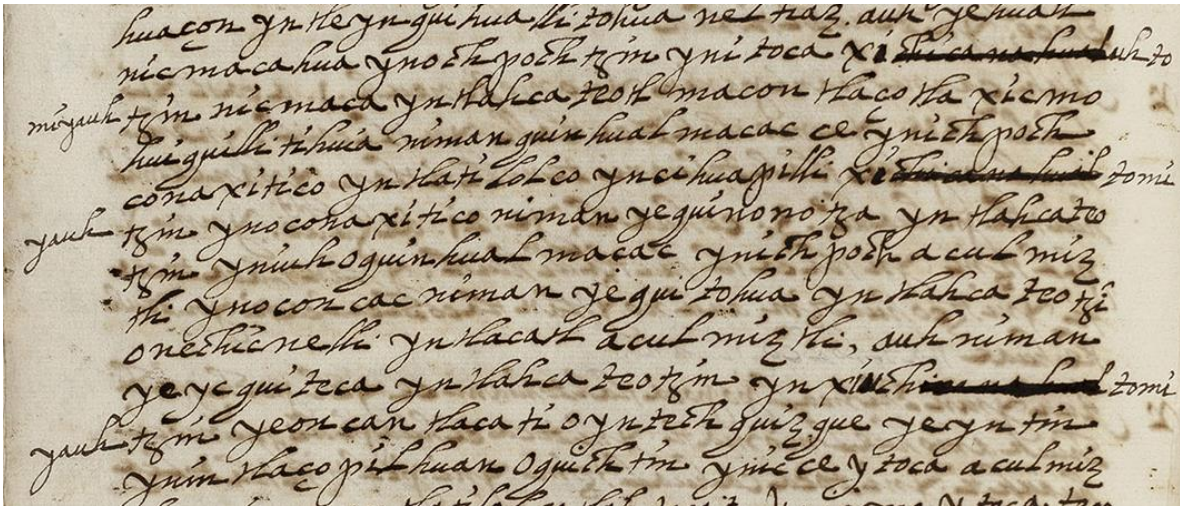 huaçon yn tle yn quihualli tohua neltiaz. auh yehuatl
nicmacahua ynochpochtzin yni toca xi uh to
miyauh tzin nicmaca yn tlahcateotl macon tlaçotla xicmo
huiquilli tihuia niman quinhualmacac ce ynichpoch
conaxitico yn tlatilolco yn cihuapilli xi tomi
yauh tzin ynoconaxitico niman yequinonotza yn tlahcateo
tzin yniuh oquinhualmacac ynichpoch aculmiz
tli ynoconcac niman yequitohua yn tlahcateotzi
onechicnelli yn tlacatl aculmiztli, auh niman
yeyequiteca yn tlahcateotzin yn xiuh tomi
yauh tzin yeoncan tlacati oyntech quizque yeyntin
ynin tlaçopilhuan oquichtin ynic ce ytoca aculmiz